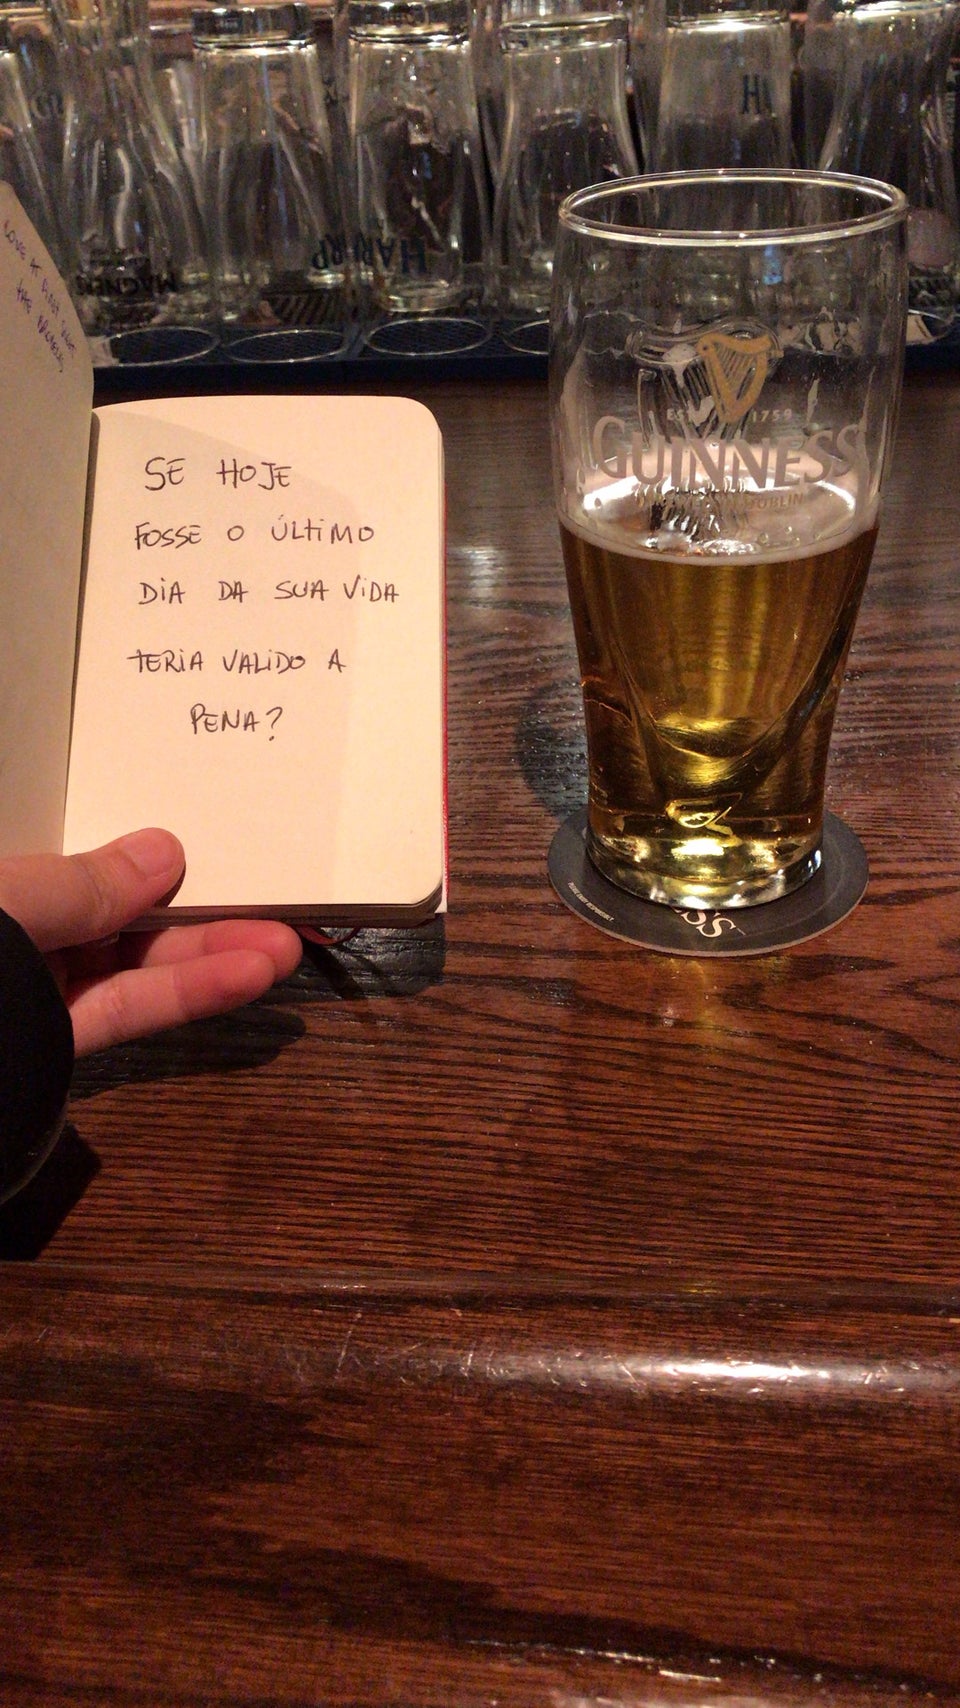 LOVE AT FIRST
SE HOJE
FOSSE O ÚLTIMO
DIA DA SUA VIDA
TERIA VALIDO A
PENA?
MAGNERS
HARP
HARP
H
EST 1759
GUINNESS
DUBLIN
SS'S